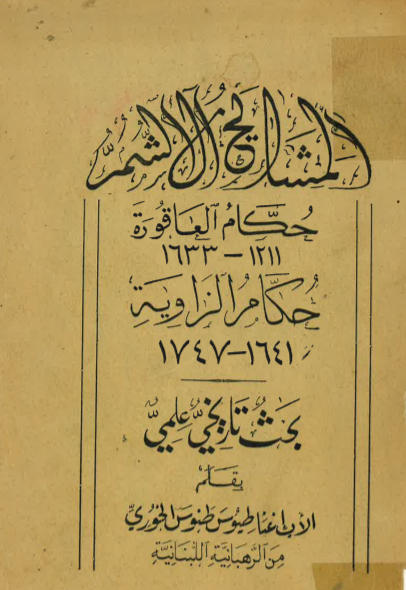 المشايخ آل الشمّر
حُكَّامُ العَاقُورَة
١٢١١ – ١٦٣٣
حُكَّامُ الزَّاوِيَةِ
١٦٤١–١٧٤٧
بَحثٌ تَاريخيٌّ عِلميٌّ
بِقَلَم
الأب اغناطيوس طنوس الخوري
مِنَ الرَّهبَانِيَّةِ اللُّبنَانِيَّةِ